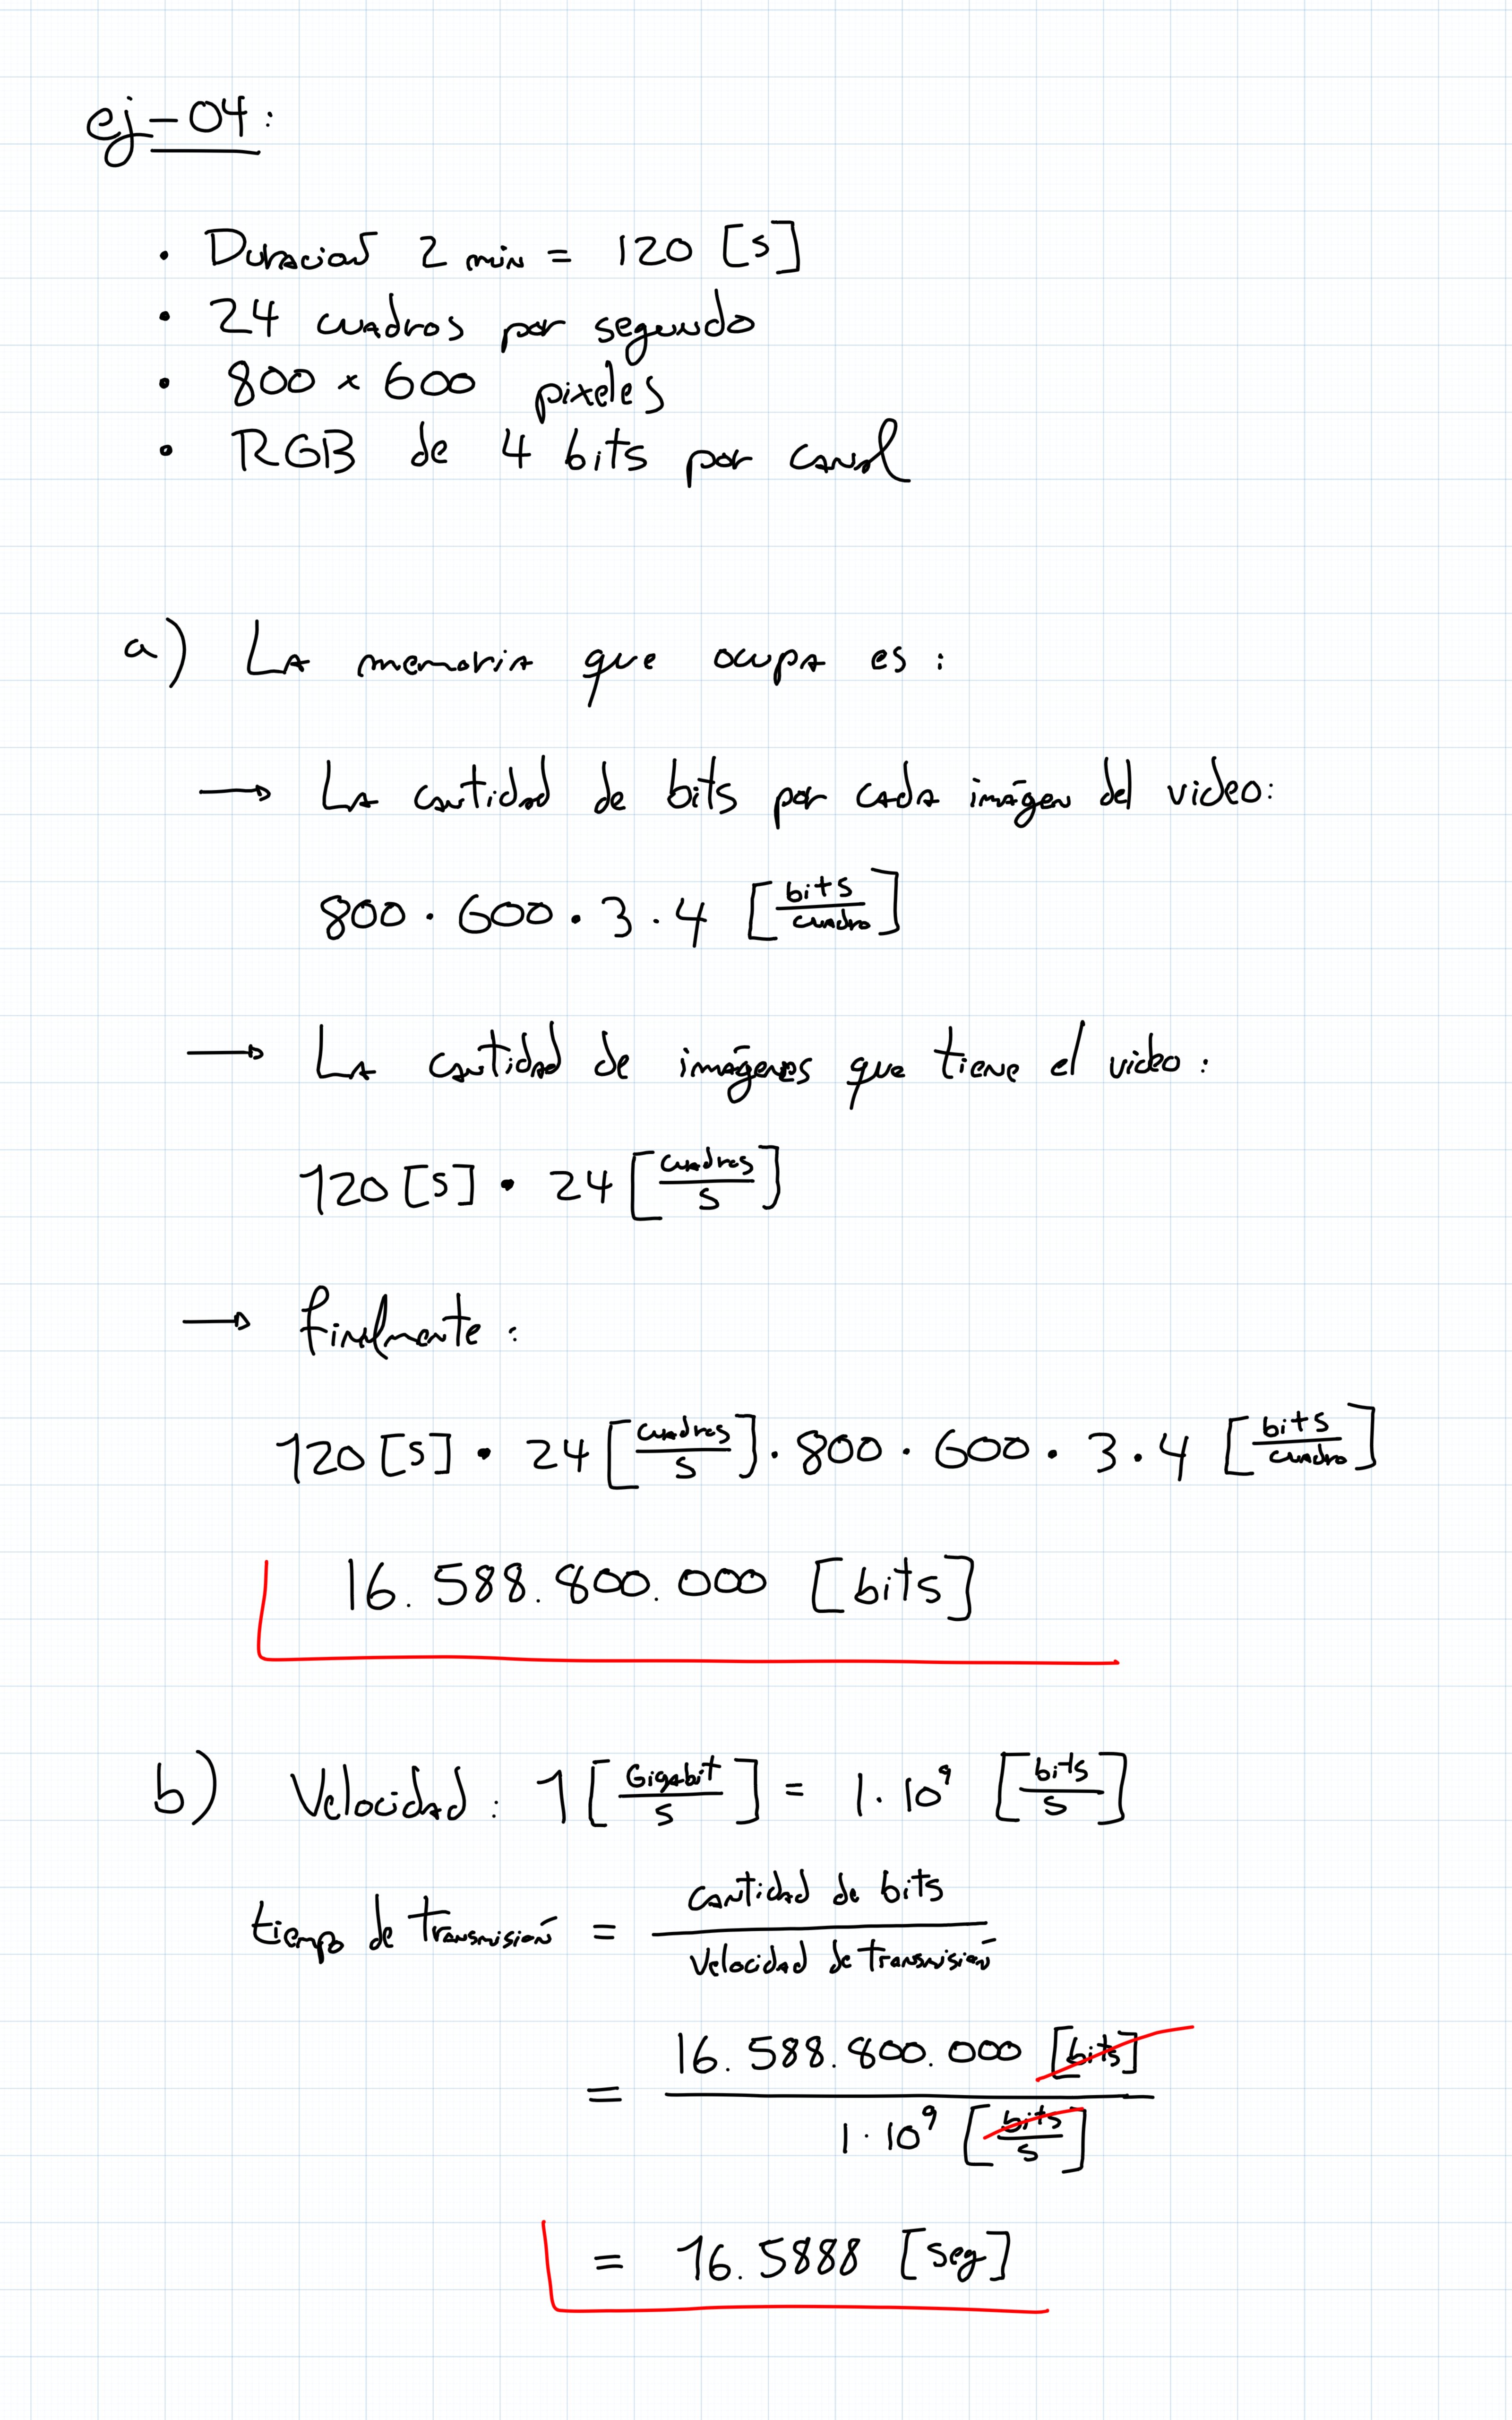 ej-04:
• Duración 2 min = 120 [s]
• 24 cuadros por segundo
• 800 × 600 pixeles
• RGB de 4 bits por canal
a) LA memoria que ocupa es :
→ LA cantidad de bits por cada imágen del video:
800 · 600 · 3 . 4 [bits/cuadro]
→ LA cantidad de imágenes que tiene el video :
120 [s] · 24 [cuadros/s]
→ finalmente :
120 [s] · 24 [cuadros/s] . 800 . 600 . 3 . 4 [bits/cuadro]
16. 588. 800. 000 [bits]
b) Velocidad : 1 [Gigabit/s] = 1 . 10⁹ [bits/s]
tiempo de transmisión = cantidad de bits / Velocidad de transmisión
= 16. 588. 800. 000 [bits] / 1 . 10⁹ [bits/s]
= 16. 5888 [seg]